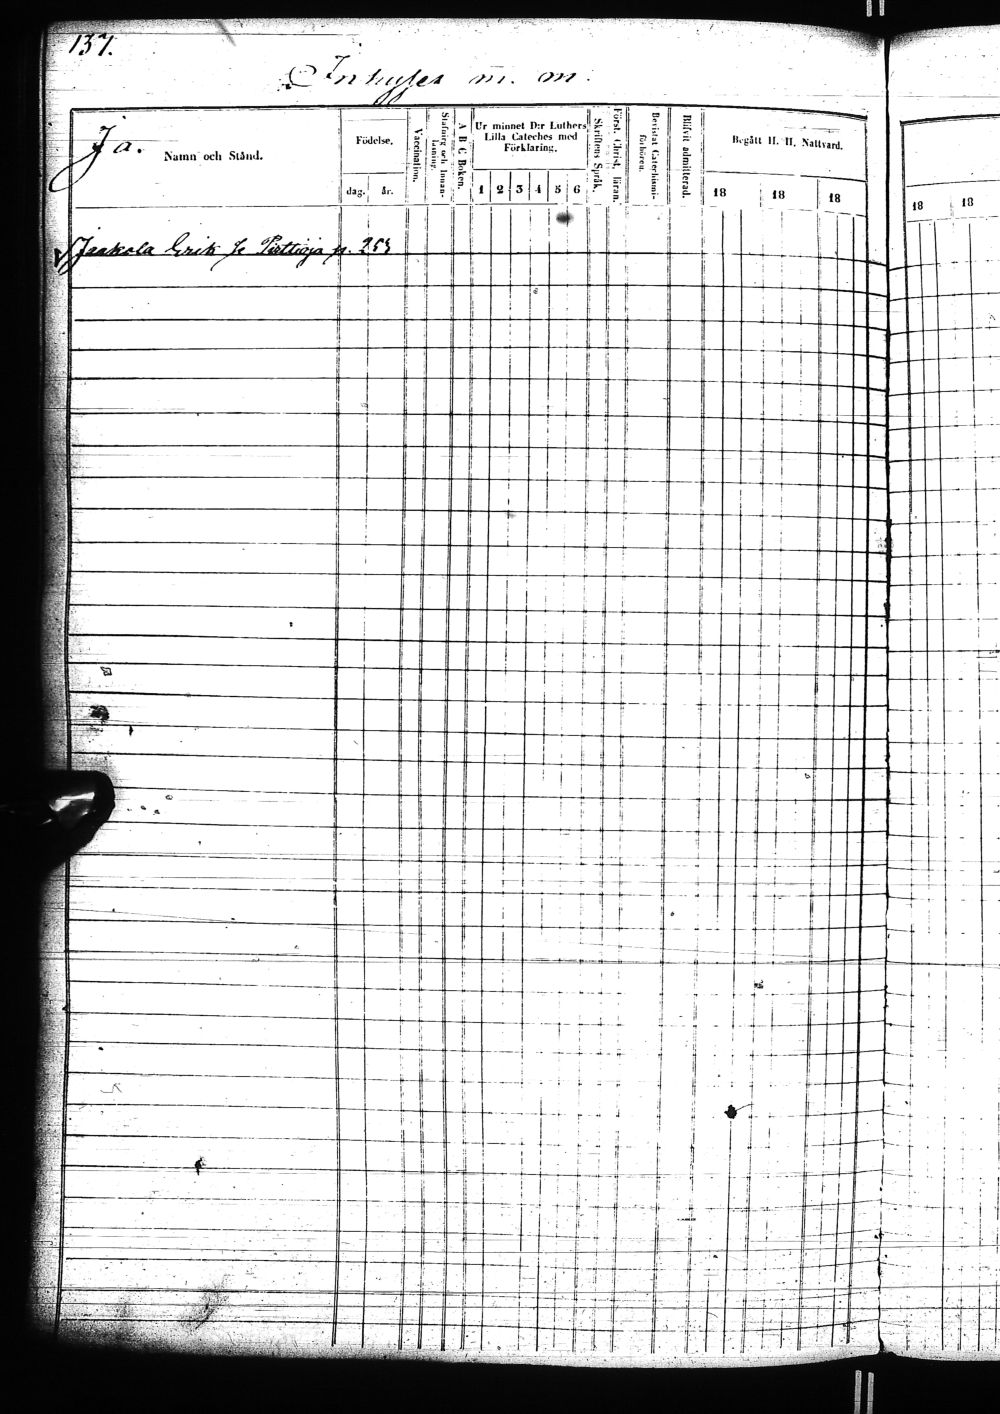 137.
Inhyses m. m.
Ja.
Namn och Stånd.
Födelse.
dag. år.
Vaccination.
Stafning och Innanläsning.
A B C Boken.
Ur minnet D:r Luthers
Lilla Cateches med
Förklaring.
1 2 3 4 5 6
Skriftens Språk.
Först. Christ. läran.
Bevistat Catechismi-
förhören.
Blifvit admitterad.
Begått H. H. Nattvard.
18 18 18
Jaakola Erik se p. 253
18 18